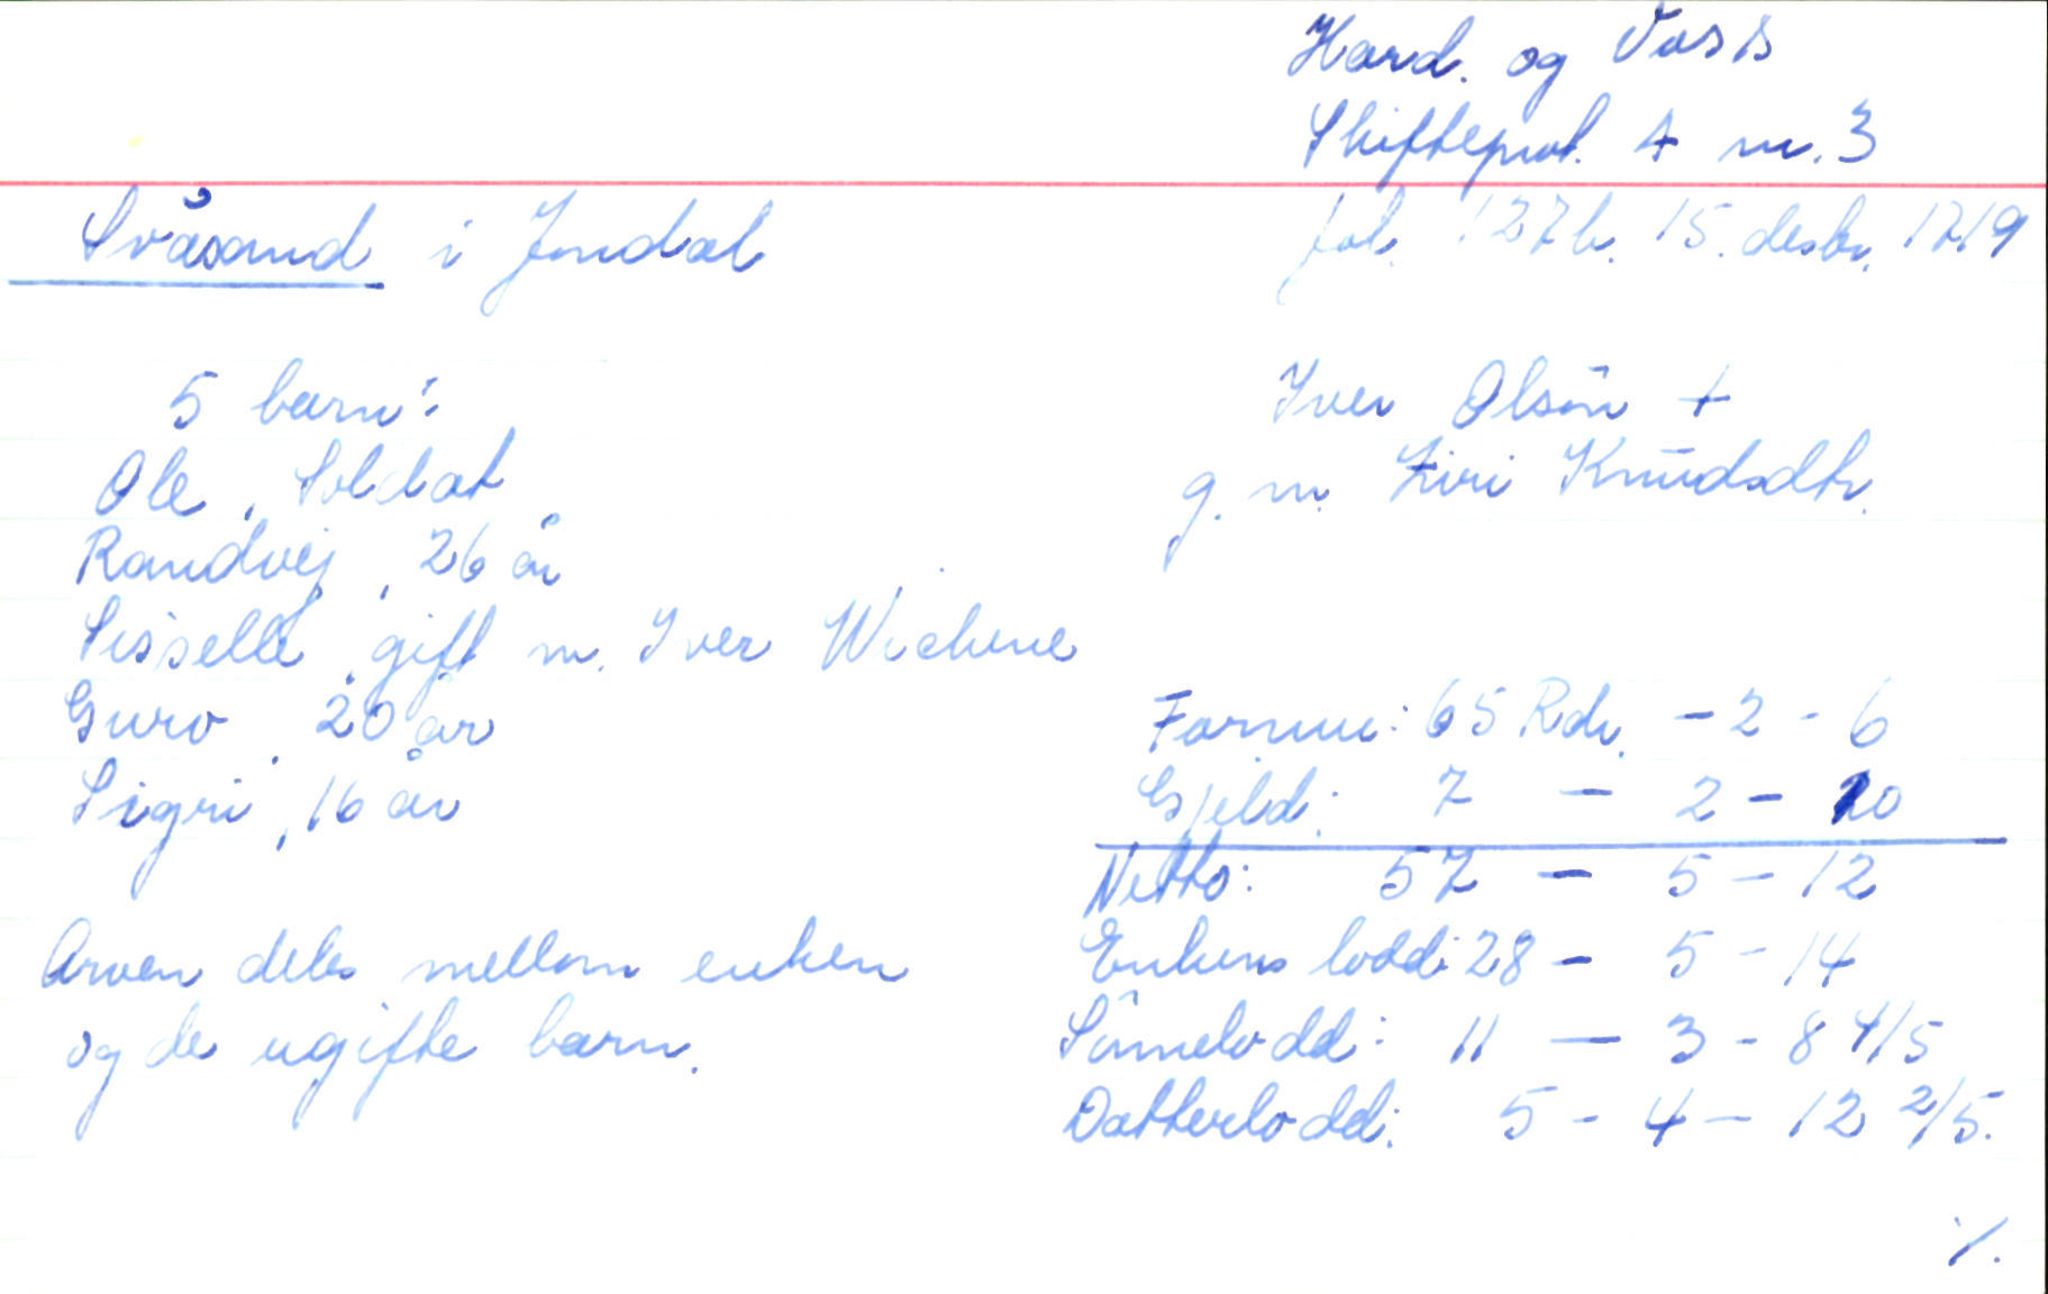 Hard. og Voss
Skifteprot. A nr. 3
Svåsand i Jondal
fol. 127b. 15. desbr. 1719
5 barn:
Ole, Soldat
Randvej, 26 år
Sisselle, gift m. Iver Wichene
Guro, 20 år
Sigri, 16 år
Arven deles mellom enken
og de ugifte barn.
Iver Olsön +
g. m. Ziri Knudsdtr.
Formue: 65 Rdr. - 2 - 6
Gjeld: 7 - 2 - 10
Netto: 57 - 5 - 12
Enkens lodd: 28 - 5 - 14
Sönnelodd: 11 - 3 - 8 4/5
Datterlodd: 5 - 4 - 12 2/5.
./.